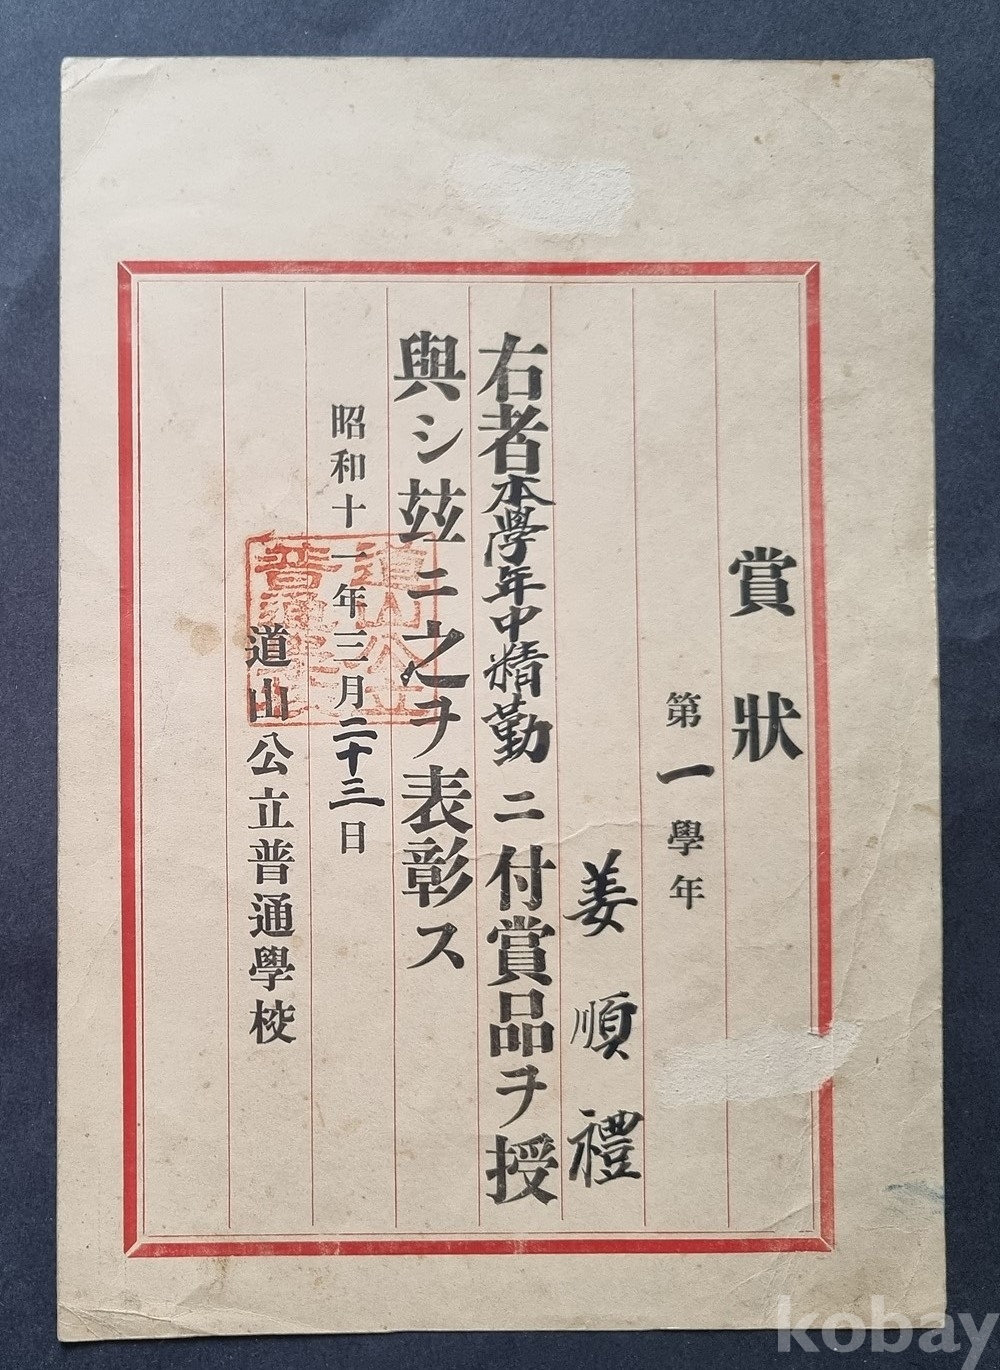 賞狀
第一學年
姜順禮
右者本學年中精勤ニ付賞品ヲ授
與シ玆ニ之ヲ表彰ス
昭和十一年三月二十三日
道山公立普通學校
道山公立
普通學校
kobay